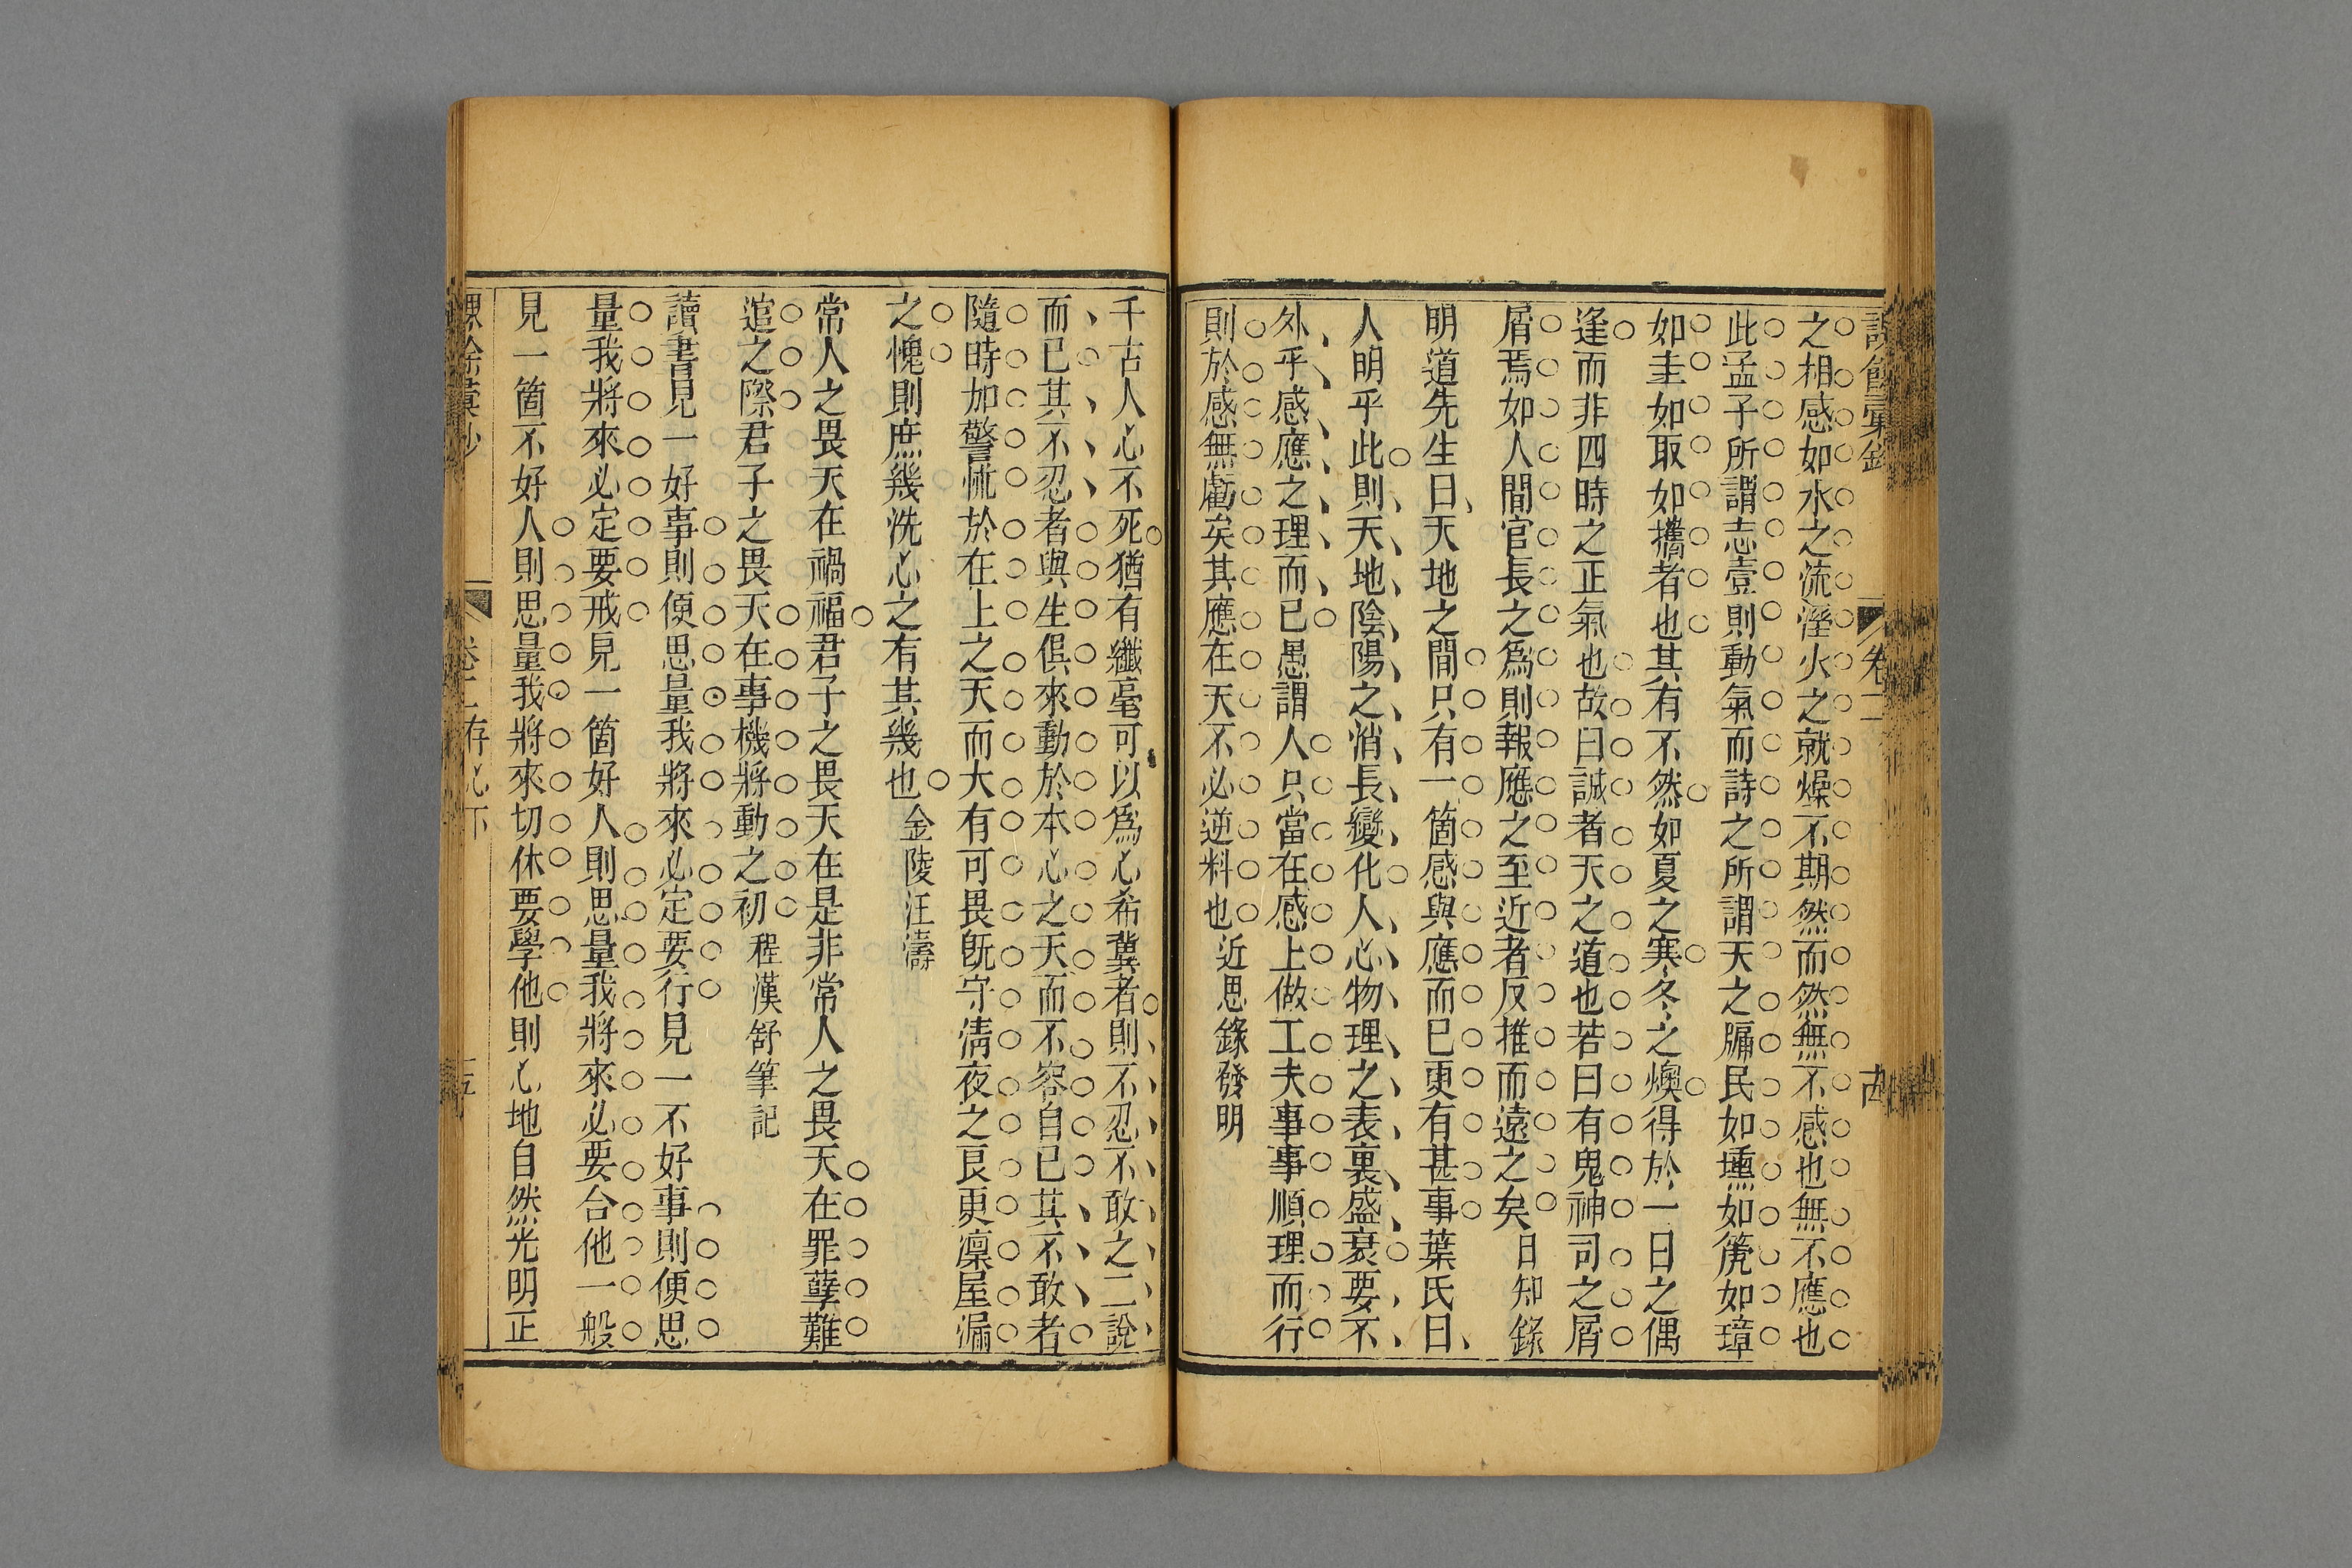 之相感如水之流溼火之就燥不期然而然無不感也無不應也
此孟子所謂志壹則動氣而詩之所謂天之牖民如壎如篪如璋
如圭如取如攜者也其有不然如夏之寒冬之燠得於一日之偶
逢而非四時之正氣也故曰誠者天之道也若曰有鬼神司之屑
屑焉如人間官長之為則報應之至近者反推而遠之矣日知錄
明道先生曰天地之間只有一箇感與應而已更有甚事葉氏曰
人明乎此則天地陰陽之消長變化人心物理之表裏盛衰要不
外乎感應之理而已愚謂人只當在感上做工夫事事順理而行
則於感無虧矣其應在天不必逆料也近思錄發明
卷二
千古人心不死猶有纖毫可以為心希冀者則不忍不敢之二說
而已其不忍者與生俱來動於本心之天而不容自已其不敢者
隨時加警惕於在上之天而大有可畏旣守淸夜之良更凜屋漏
之愧則庶幾洗心之有其幾也金陵汪濤
常人之畏天在禍福君子之畏天在是非常人之畏天在罪孽難
逭之際君子之畏天在事機將動之初程漢舒筆記
讀書見一好事則便思量我將來必定要行見一不好事則便思
量我將來必定要戒見一箇好人則思量我將來必要合他一般
見一箇不好人則思量我將來切休要學他則心地自然光明正